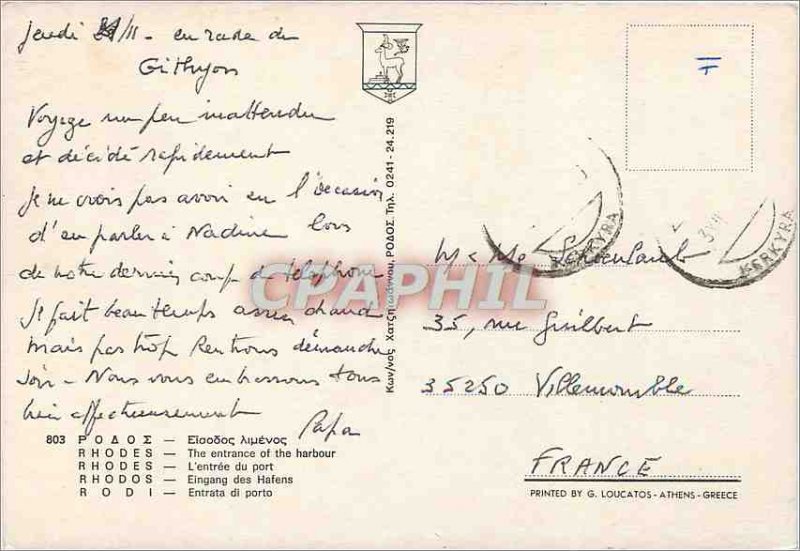 Jeudi /11 - en rade de
Githyon
Voyage un peu inattendu
et décidé rapidement
Je ne crois pas avoir eu l'occasion
d'en parler à Nadine lors
de notre dernier coup de téléphone
Il fait beau temps assez chaud
mais pas trop Rentrons dimanche
soir - Nous vous embrassons tous
bien affectueusement
Papa
803 ΡΟΔΟΣ — Εἴσοδος λιμένος
RHODES — The entrance of the harbour
RHODES — L'entrée du port
RHODOS — Eingang des Hafens
RODI — Entrata di porto
Κων/νος Χατζηιωάννου, ΡΟΔΟΣ. Τηλ. 0241 - 24.219
KERKYRA
KERKYRA
M & Me
35, rue Guilbert
35250 Villemomble
FRANCE
PRINTED BY G. LOUCATOS - ATHENS - GREECE
CPAPHIL